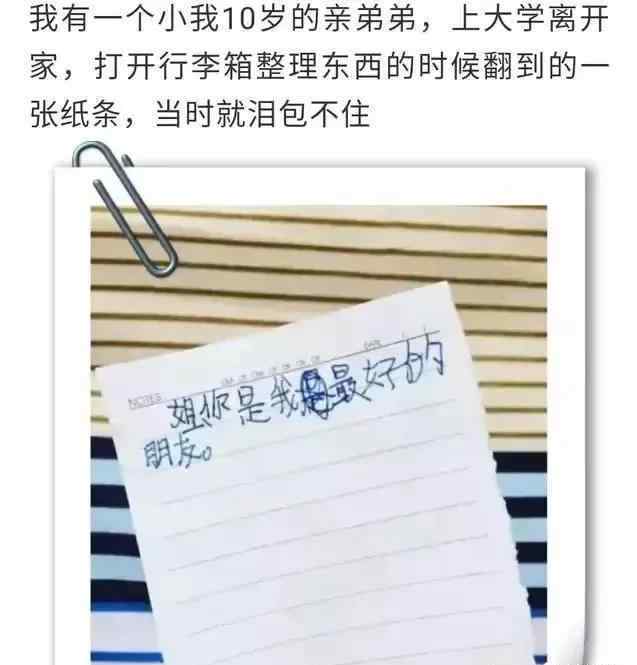 我有一个小我10岁的亲弟弟，上大学离开
家，打开行李箱整理东西的时候翻到的一
张纸条，当时就泪包不住
NOTES
DATE
姐你是我最好的
朋友。